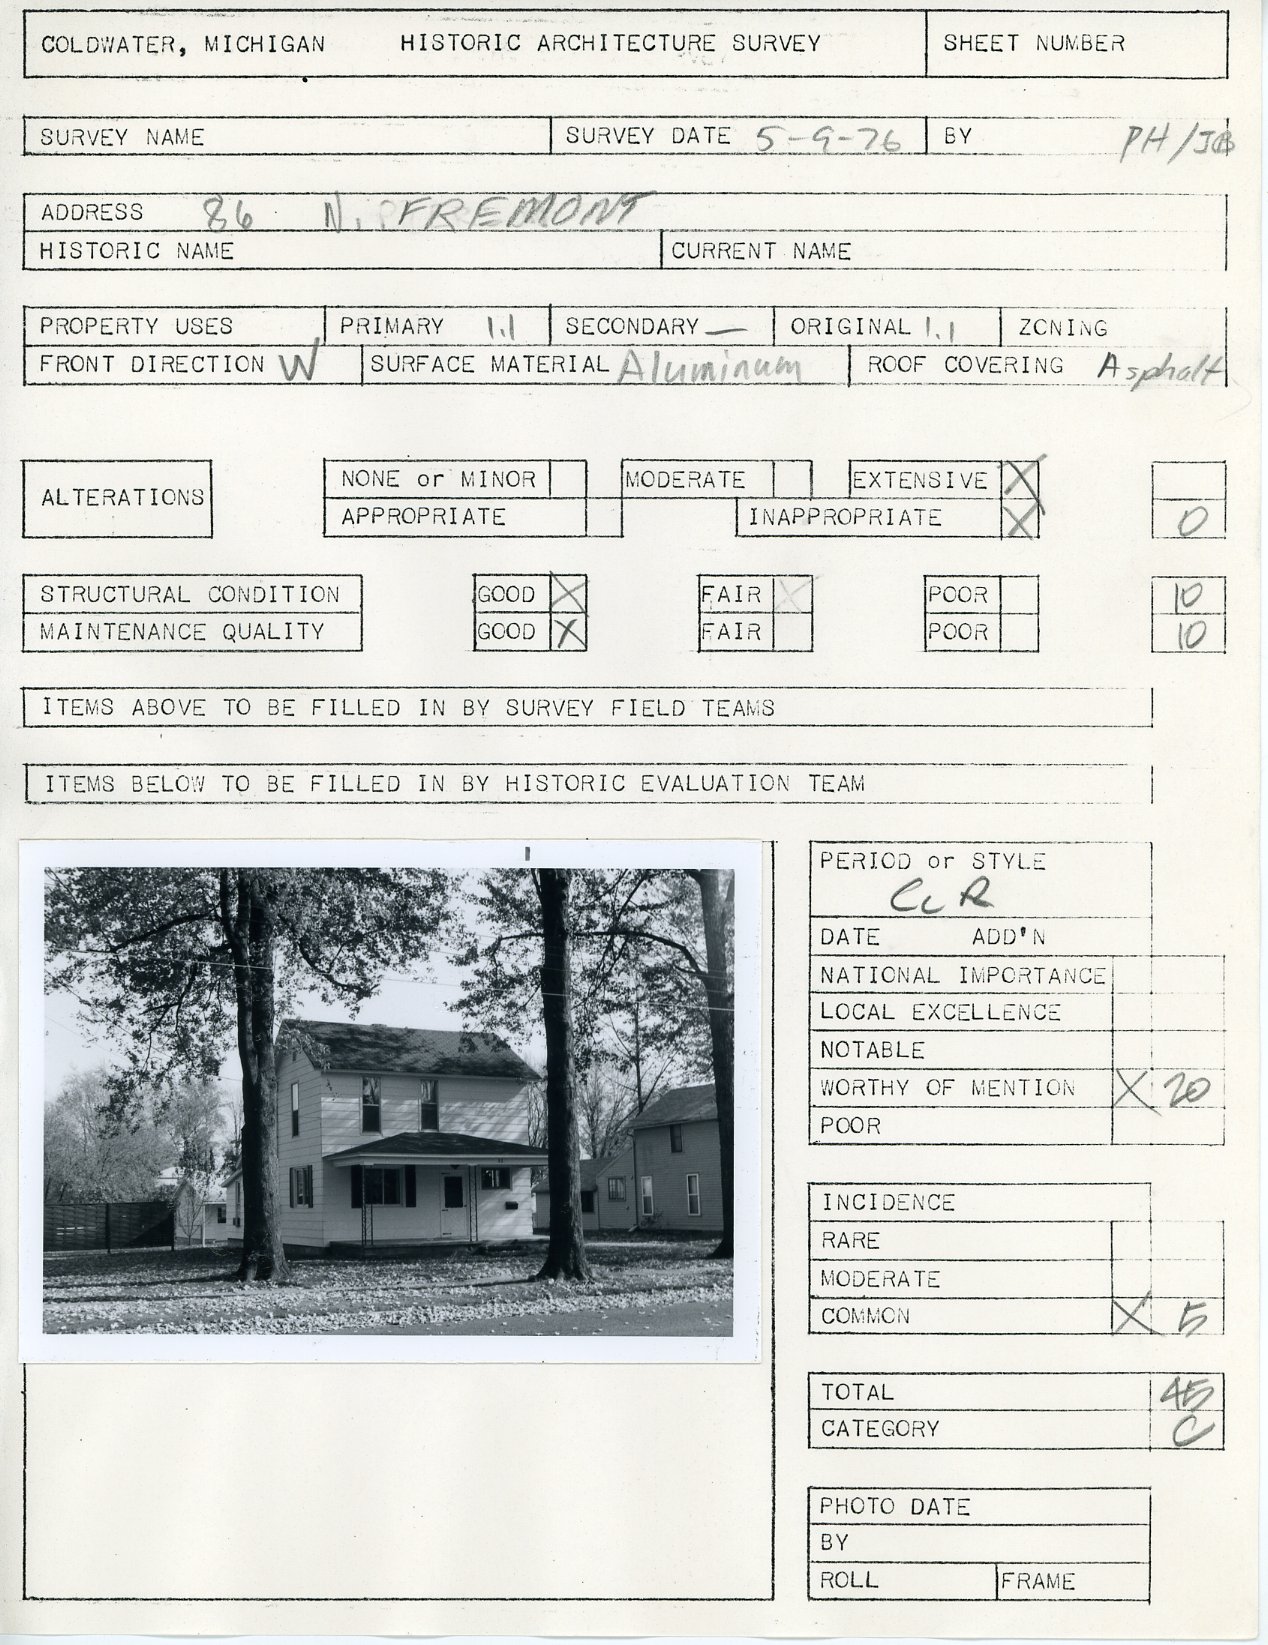 COLDWATER, MICHIGAN HISTORIC ARCHITECTURE SURVEY SHEET NUMBER
SURVEY NAME SURVEY DATE 5-9-76 BY PH/JB
ADDRESS 86 N. FREMONT
HISTORIC NAME CURRENT NAME
PROPERTY USES PRIMARY 1.1 SECONDARY — ORIGINAL 1.1 ZONING
FRONT DIRECTION W SURFACE MATERIAL Aluminum ROOF COVERING Asphalt
ALTERATIONS
NONE or MINOR MODERATE EXTENSIVE X
APPROPRIATE INAPPROPRIATE X 0
STRUCTURAL CONDITION GOOD X FAIR X POOR 10
MAINTENANCE QUALITY GOOD X FAIR POOR 10
ITEMS ABOVE TO BE FILLED IN BY SURVEY FIELD TEAMS
ITEMS BELOW TO BE FILLED IN BY HISTORIC EVALUATION TEAM
PERIOD or STYLE
CcR
DATE ADD'N
NATIONAL IMPORTANCE
LOCAL EXCELLENCE
NOTABLE
WORTHY OF MENTION X 20
POOR
INCIDENCE
RARE
MODERATE
COMMON X 5
TOTAL 45
CATEGORY C
PHOTO DATE
BY
ROLL FRAME